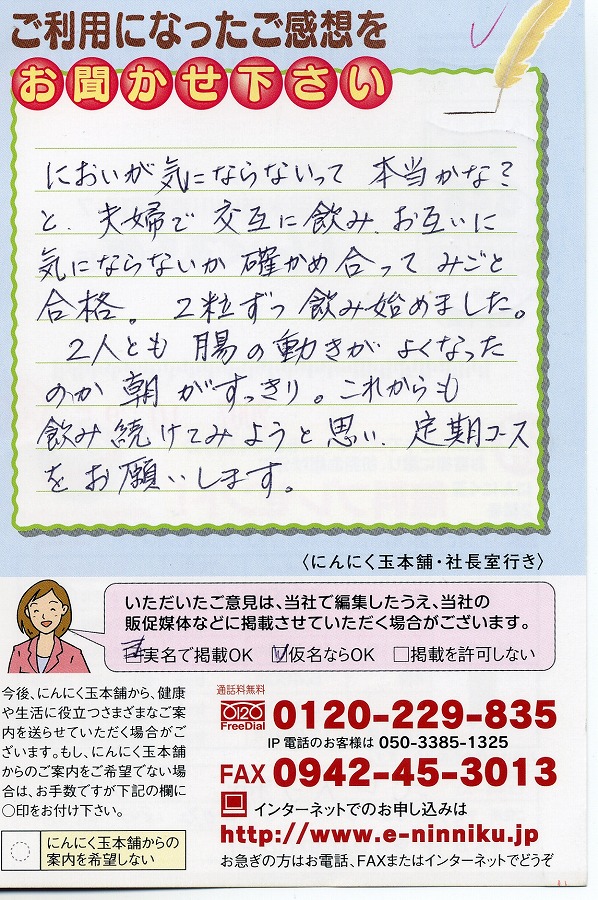 ご利用になったご感想を
お聞かせ下さい
においが気にならないって 本当かな?
と、夫婦で 交互に飲み、お互いに
気にならないか 確かめ合って みごと
合格。 2粒ずつ 飲み始めました。
2人とも 腸の動きが よくなった
のか 朝 がすっきり。これからも
飲み続けてみようと思い、定期コース
をお願いします。
〈にんにく玉本舗・社長室行き〉
いただいたご意見は、当社で編集したうえ、当社の
販促媒体などに掲載させていただく場合がございます。
□実名で掲載OK ☑仮名ならOK □掲載を許可しない
今後、にんにく玉本舗から、健康
や生活に役立つさまざまなご案
内を送らせていただく場合がご
ざいます。もし、にんにく玉本舗
からのご案内をご希望でない場
合は、お手数ですが下記の欄に
○印をお付け下さい。
にんにく玉本舗からの
案内を希望しない
通話料無料
0120
FreeDial
0120-229-835
IP電話のお客様は 050-3385-1325
FAX 0942-45-3013
インターネットでのお申し込みは
http://www.e-ninniku.jp
お急ぎの方はお電話、FAXまたはインターネットでどうぞ